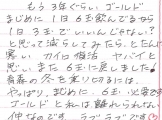 もう3年ぐらい、ゴールド
まじめに1日6玉飲んでるから
1日3玉でいいんじゃない？
と思って減らしてみたら、とたんに
寒い カイロ復活 ヤバイと
思い また6玉に戻しました
青森の冬を乗り切るには、
やっぱり、まじめに、6玉 必要です
ゴールドと私は離れられない
仲なのです。ラブラブです